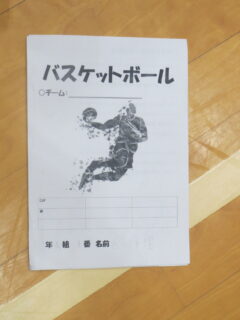 バスケットボール
○チーム：
年　組　番 名前